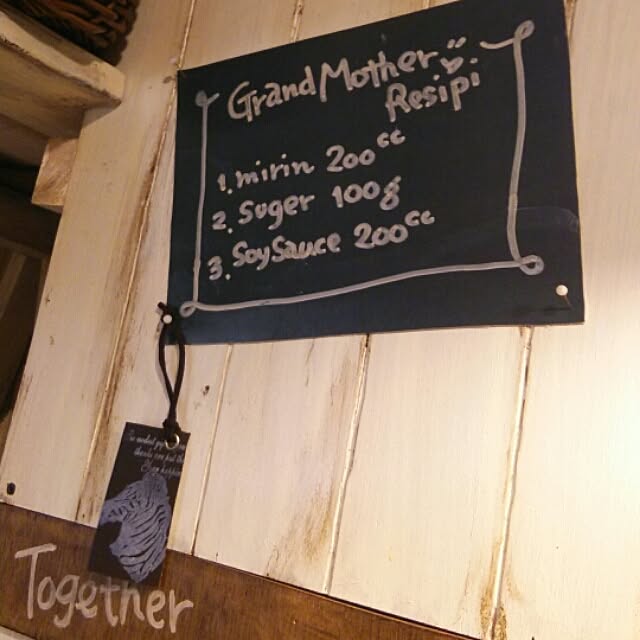 GrandMother
Resipi
1. mirin 200cc
2. Suger 100g
3. Soy Sauce 200cc
Together